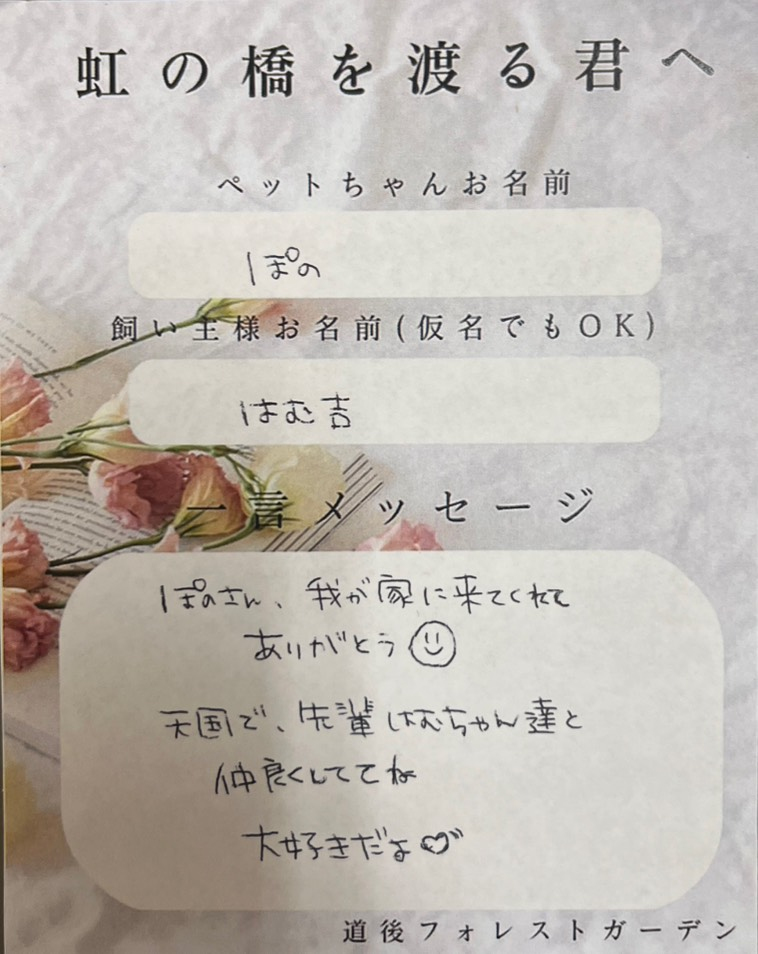 虹の橋を渡る君へ
ペットちゃんお名前
ぽの
飼い主様お名前(仮名でもOK)
はむ吉
一言メッセージ
ぽのさん、我が家に来てくれて
ありがとう
天国で、先輩はむちゃん達と
仲良くしててね
大好きだよ♡
道後フォレストガーデン